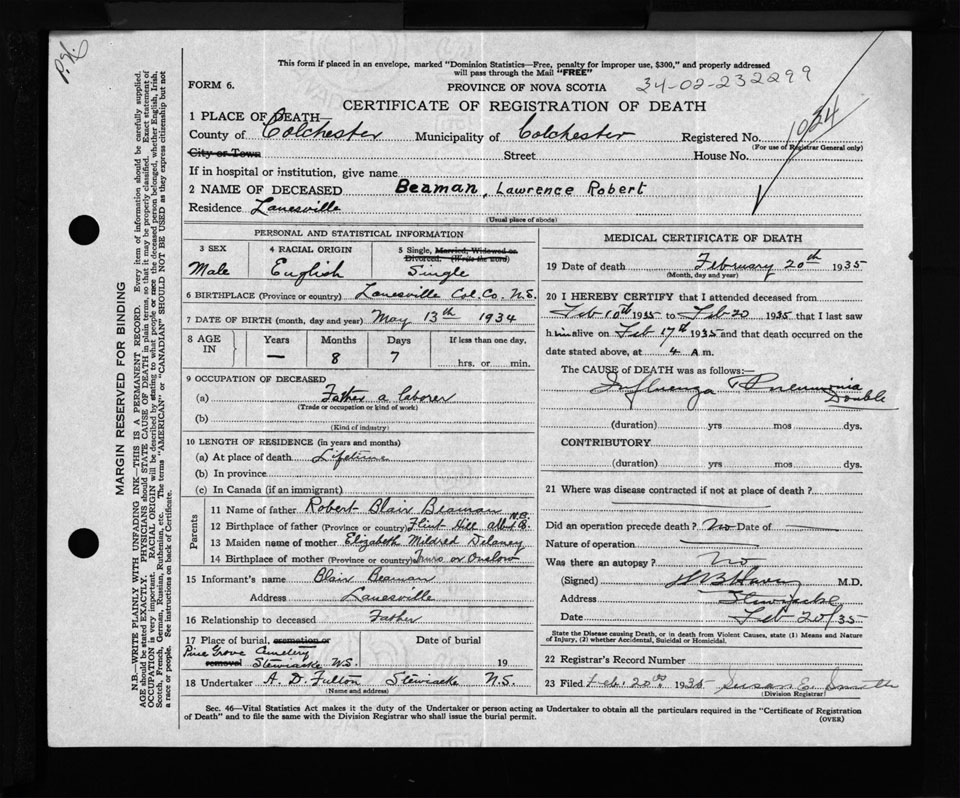 P.H.
This form if placed in an envelope, marked "Dominion Statistics—Free, penalty for improper use, $300," and properly addressed
will pass through the Mail "FREE"
FORM 6.
PROVINCE OF NOVA SCOTIA
34-02-232299
CERTIFICATE OF REGISTRATION OF DEATH
1 PLACE OF DEATH—
County of Colchester Municipality of Colchester Registered No. 1024
(For use of Registrar General only)
City or Town Street House No.
If in hospital or institution, give name
2 NAME OF DECEASED Beaman, Lawrence Robert
Residence Lanesville
(Usual place of abode)
PERSONAL AND STATISTICAL INFORMATION
3 SEX 4 RACIAL ORIGIN 5 Single, Married, Widowed or
Divorced. (Write the word)
Male English Single
6 BIRTHPLACE (Province or country) Lanesville Col. Co. N.S.
7 DATE OF BIRTH (month, day and year) May 13th 1934
8 AGE IN Years Months Days If less than one day,
— 8 7 hrs. or min.
9 OCCUPATION OF DECEASED
(a) Father a laborer
(Trade or occupation or kind of work)
(b)
(Kind of industry)
10 LENGTH OF RESIDENCE (in years and months)
(a) At place of death Lifetime
(b) In province
(c) In Canada (if an immigrant)
Parents
11 Name of father Robert Blair Beaman
12 Birthplace of father (Province or country) Flint Hill N.B.
13 Maiden name of mother Elizabeth Mildred Delaney
14 Birthplace of mother (Province or country) Truro or Onslow
15 Informant's name Blair Beaman
Address Lanesville
16 Relationship to deceased Father
17 Place of burial, cremation or removal Date of burial
Pine Grove Cemetery
Stewiacke N.S. 19
18 Undertaker A. D. Fulton Stewiacke N.S.
(Name and address)
MEDICAL CERTIFICATE OF DEATH
19 Date of death February 20th 1935
(Month, day and year)
20 I HEREBY CERTIFY that I attended deceased from
Feb 10th 1935 to Feb 20 1935 that I last saw
him alive on Feb 17th 1935 and that death occurred on the
date stated above, at 4 A.m.
The CAUSE of DEATH was as follows:—
Influenza & Pneumonia
Double
(duration) yrs mos dys.
CONTRIBUTORY
(duration) yrs mos dys.
21 Where was disease contracted if not at place of death?
Did an operation precede death? No Date of
Nature of operation
Was there an autopsy? No
(Signed) M.D.
Address Stewiacke
Date Feb 20/35
State the Disease causing Death, or in death from Violent Causes, state (1) Means and Nature
of Injury, (2) whether Accidental, Suicidal or Homicidal.
22 Registrar's Record Number
23 Filed Feb. 20th 1935 Susan E. Smith
(Division Registrar)
Sec. 46—Vital Statistics Act makes it the duty of the Undertaker or person acting as Undertaker to obtain all the particulars required in the "Certificate of Registration
of Death" and to file the same with the Division Registrar who shall issue the burial permit.
(OVER)
MARGIN RESERVED FOR BINDING
N.B.—WRITE PLAINLY WITH UNFADING INK—THIS IS A PERMANENT RECORD. Every item of information should be carefully supplied.
AGE should be stated EXACTLY. PHYSICIANS should STATE CAUSE OF DEATH in plain terms, so that it may be properly classified. Exact statement of
OCCUPATION is very important. RACIAL ORIGIN will be described by stating to what people or race the deceased person belonged, whether English, Irish,
Scotch, French, German, Russian, Ruthenian, etc. The terms "AMERICAN" or "CANADIAN" SHOULD NOT BE USED as they express citizenship but not
a race or people. See instructions on back of Certificate.